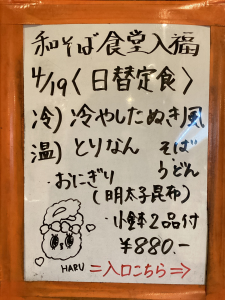 和そば食堂入福
4/19〈日替定食〉
冷)冷やしたぬき風
温)とりなん そば
うどん
・おにぎり
(明太子昆布)
・小鉢2品付
¥880.-
HARU
=入口こちら⇒